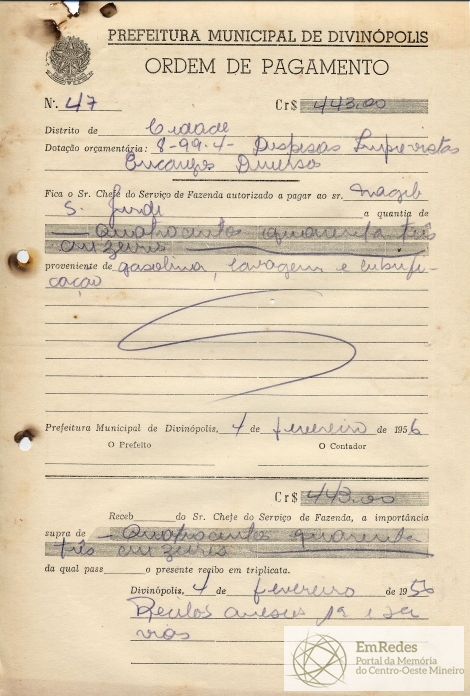 PREFEITURA MUNICIPAL DE DIVINÓPOLIS
ORDEM DE PAGAMENTO
N.º 47 Cr$ 443,00
Distrito de Cidade
Dotação orçamentária: 8-99.4- Despesas Imprevistas
Encargos Diversos
Fica o Sr. Chefe do Serviço de Fazenda autorizado a pagar ao sr. Nagib
S. a quantia de
— Quatrocentos quarenta três
cruzeiros
proveniente de gasolina, lavagem e lubrifi-
cação
Prefeitura Municipal de Divinópolis, 4 de fevereiro de 1956
O Prefeito O Contador
Cr$ 443,00
Receb do Sr. Chefe do Serviço de Fazenda, a importância
supra de — Quatrocentos quarenta
três cruzeiros
da qual pass o presente recibo em triplicata.
Divinópolis, 4 de fevereiro de 1956
Recibos anexos 1ª e
vias
EmRedes
Portal da Memória
do Centro-Oeste Mineiro